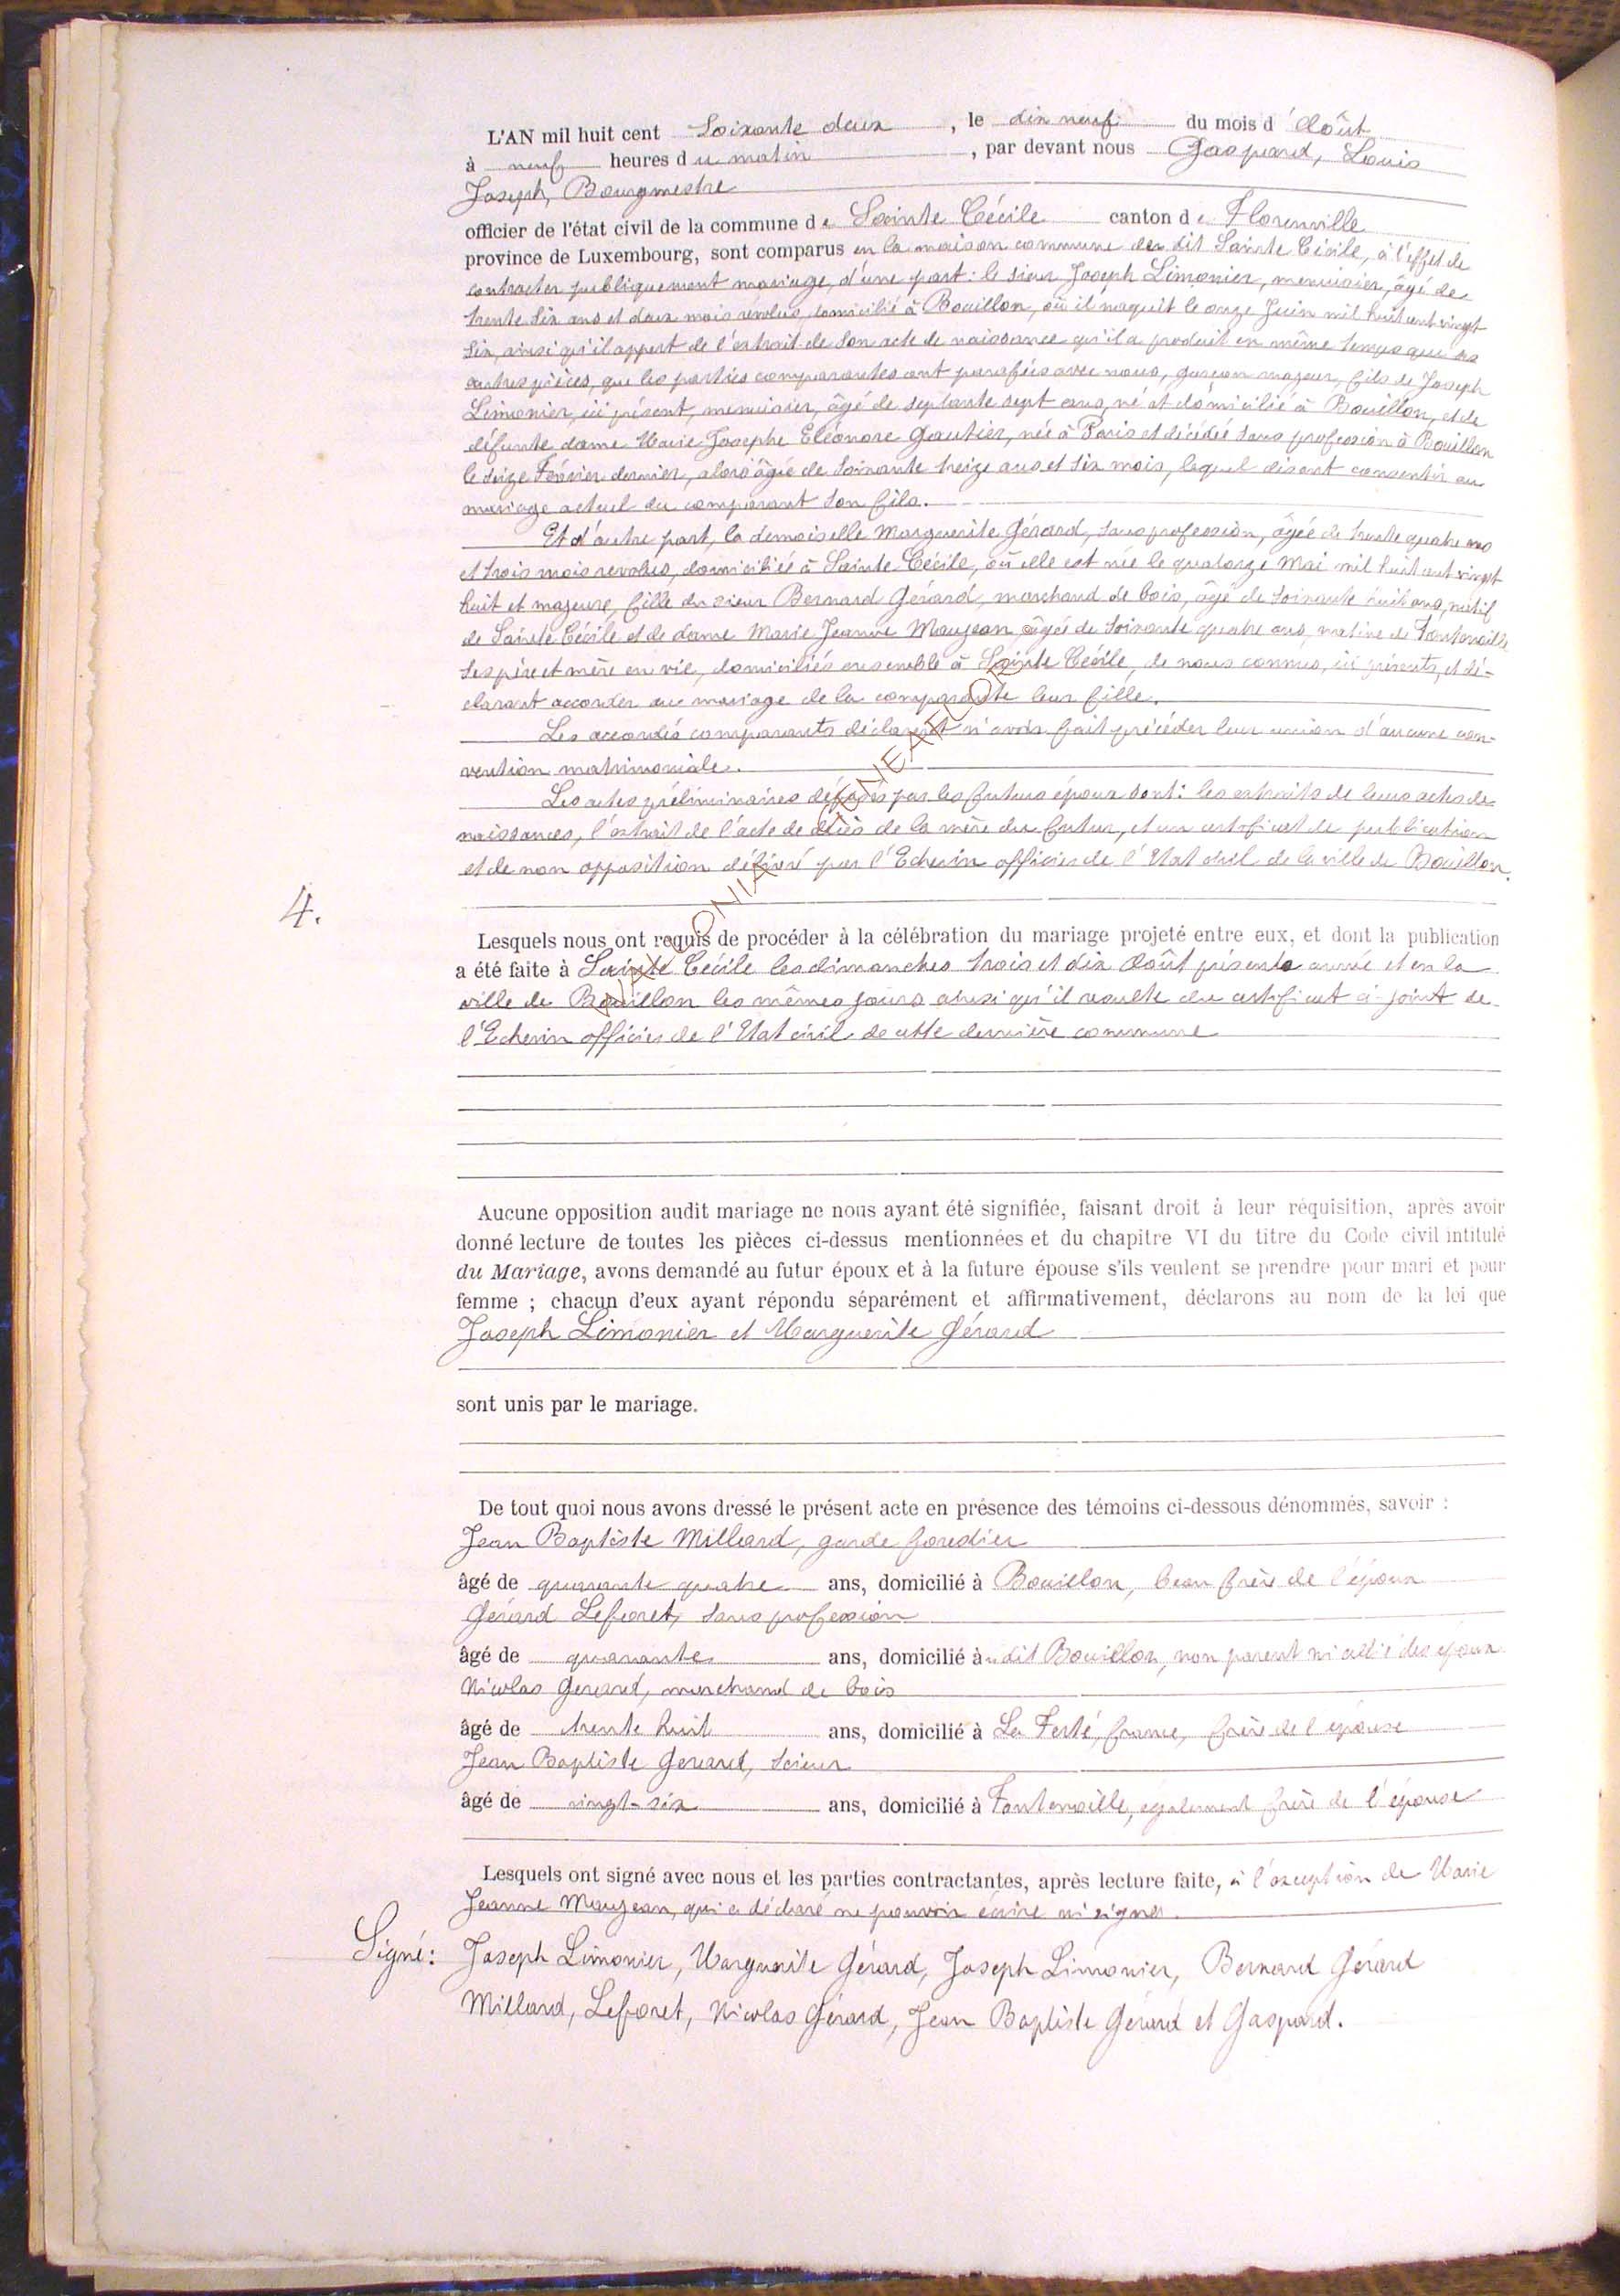 L'AN mil huit cent Soixante deux, le dix neuf du mois d'Août
à neuf heures du matin, par devant nous Gaspard, Louis
Joseph, Bourgmestre
officier de l'état civil de la commune de Sainte Cécile canton de Florenville
province de Luxembourg, sont comparus en la maison commune du dit Sainte Cécile, à l'effet de
contracter publiquement mariage, d'une part: le sieur Joseph Limonier, menuisier, âgé de
trente six ans et deux mois révolus, domicilié à Bouillon, où il naquit le onze Juin mil huit cent vingt
six, ainsi qu'il appert de l'extrait de son acte de naissance qu'il a produit en même temps que les
autres pièces, que les parties comparantes ont parafées avec nous, garçon majeur, fils de Joseph
Limonier, ici présent, menuisier, âgé de septante sept ans, né et domicilié à Bouillon, et de
défunte dame Marie Josephe Eléonore Gautier, née à Paris et décédée sans profession à Bouillon
le seize Février dernier, alors âgée de soixante treize ans et six mois, lequel disant consentir au
mariage actuel du comparant son fils.
Et d'autre part, la demoiselle Marguerite Gérard, sans profession, âgée de trente quatre ans
et trois mois revolus, domiciliée à Sainte Cécile, où elle est née le quatorze Mai mil huit cent vingt
huit et majeure, fille du sieur Bernard Gérard, marchand de bois, âgé de soixante huit ans, natif
de Sainte Cécile et de dame Marie Jeanne Maujean âgée de soixante quatre ans, native de Fontenoille
ses père et mère en vie, domiciliés ensemble à Sainte Cécile, de nous connus, ici présents, et dé-
clarant accorder au mariage de la comparante leur fille.
Les accordés comparants déclarent n'avoir fait précéder leur union d'aucune con-
vention matrimoniale.
Les actes préliminaires déposés par les futurs époux sont: les extraits de leurs actes de
naissances, l'extrait de l'acte de décès de la mère du futur, et un certificat de publication
et de non opposition délivré par l'Echevin officier de l'Etat civil de la ville de Bouillon.
4.
Lesquels nous ont requis de procéder à la célébration du mariage projeté entre eux, et dont la publication
a été faite à Sainte Cécile les dimanches trois et dix Août présente année et en la
ville de Bouillon les mêmes jours ainsi qu'il resulte du certificat ci-joint de
l'Echevin officier de l'Etat civil de cette dernière commune
Aucune opposition audit mariage ne nous ayant été signifiée, faisant droit à leur réquisition, après avoir
donné lecture de toutes les pièces ci-dessus mentionnées et du chapitre VI du titre du Code civil intitulé
du Mariage, avons demandé au futur époux et à la future épouse s'ils veulent se prendre pour mari et pour
femme ; chacun d'eux ayant répondu séparément et affirmativement, déclarons au nom de la loi que
Joseph Limonier et Marguerite Gérard
sont unis par le mariage.
De tout quoi nous avons dressé le présent acte en présence des témoins ci-dessous dénommés, savoir :
Jean Baptiste Millard, garde forestier
âgé de quarante quatre ans, domicilié à Bouillon, beau frère de l'époux
Gérard Leforet, sans profession
âgé de quarante ans, domicilié àu dit Bouillon, non parent ni allié des époux
Nicolas Gerard, marchand de bois
âgé de trente huit ans, domicilié à La Ferté, france, frère de l'épouse
Jean Baptiste Gerard, scieur
âgé de vingt-six ans, domicilié à Fontenoille, egalement frère de l'épouse
Lesquels ont signé avec nous et les parties contractantes, après lecture faite, à l'exception de Marie
Jeanne Maujean, qui a déclaré ne pouvoir écrire ni signer.
Signé: Joseph Limonier, Marguerite Gérard, Joseph Limonier, Bernard Gérard
Millard, Leforet, Nicolas Gérard, Jean Baptiste Gérard et Gaspard.